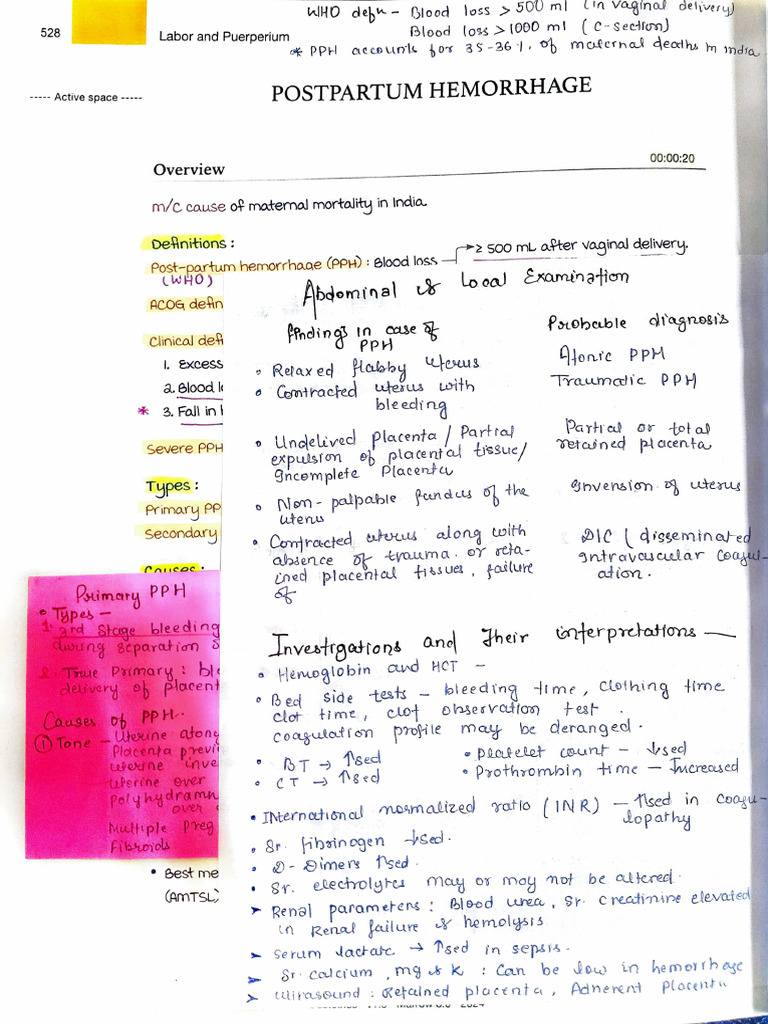 WHO defn - Blood loss > 500 ml (in vaginal delivery)
Blood loss > 1000 ml (C-section)
* PPH accounts for 35-36%. of maternal deaths in India
528
Labor and Puerperium
----- Active space -----
POSTPARTUM HEMORRHAGE
Overview
00:00:20
m/c cause of maternal mortality in India.
Definitions :
Post-partum hemorrhage (PPH) : Blood loss → ≥ 500 mL after vaginal delivery.
(WHO)
ACOG defin
Clinical defi
1. Excess
2. Blood l
* 3. Fall in
Severe PPH
Types :
Primary PP
Secondary
Causes :
Abdominal & Local Examination
findings in case of PPH
Probable diagnosis
• Relaxed flabby uterus
Atonic PPH
• Contracted uterus with
bleeding
Traumatic PPH
• Undelived Placenta / Partial
expulsion of placental tissue/
Incomplete Placenta
Partial or total
retained placenta
• Non-palpable fundus of the
uterus
Invension of uterus
• Contracted uterus along with
absence of trauma. or reta-
ined placental tissues, failure
of
DIC (disseminated
intravascular coagul-
ation.
Primary PPH
• Types –
1. 3rd Stage bleeding
during separation
2. True Primary :
delivery of placent
Causes of PPH.
① Tone – Uterine atony
Placenta previ
uterine inve
Uterine over
Polyhydramn
over
Multiple Preg
Fibroids
• Best me
(AMTSL)
Investigations and Their interpretations —
• Hemoglobin and HCT –
• Bed side tests – bleeding time, clothing time
clot time, clot observation test.
coagulation profile may be deranged.
• BT → ↑sed
• Platelet count – ↓sed
• CT → ↑sed
• Prothrombin time – Increased
• International normalized ratio (INR) – ↑sed in coagu-
lopathy
• Sr. fibrinogen ↓sed.
• D-Dimers ↑sed.
• Sr. electrolytes may or may not be altered.
➤ Renal parameters : Blood urea, Sr. Creatinine elevated
in Renal failure & hemolysis
➤ Serum lactate → ↑sed in sepsis.
➤ Sr. calcium, mg & K : Can be low in hemorrhage
➤ Ultrasound : Retained placenta, Adherent Placenta